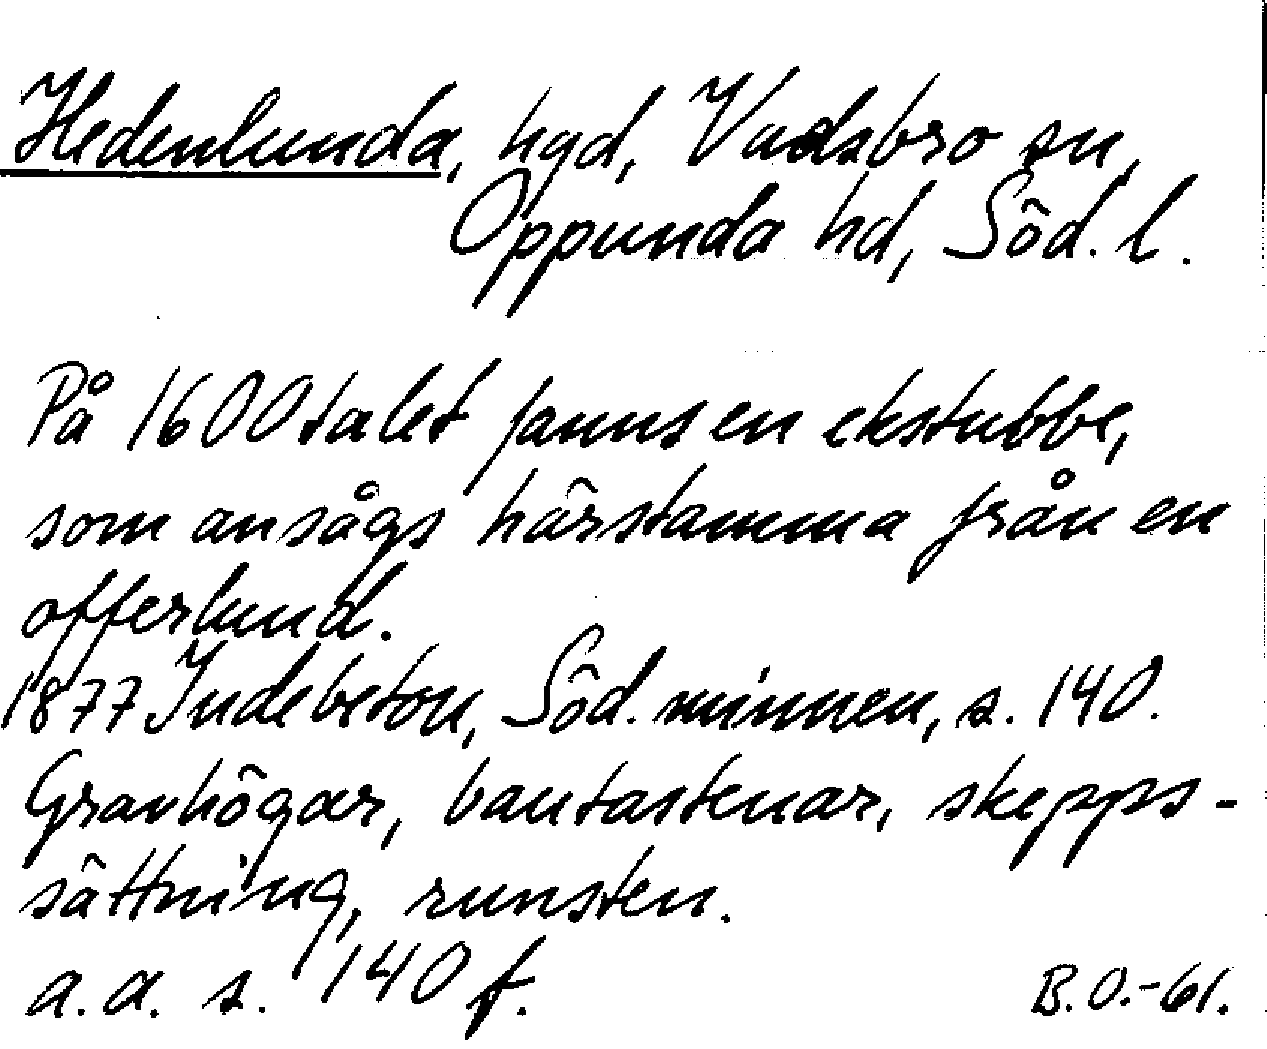 Hedenlunda, hgd, Vadsbro sn,
Oppunda hd, Söd. l.
På 1600 talet fanns en ekstubbe,
som ansågs härstamma från en
offerlund.
1877 Indebetou, Söd. minnen, s. 140.
Gravhögar, bautastenar, skepps-
sättning, runsten.
a.a. s. 140 f.
B.O.-61.